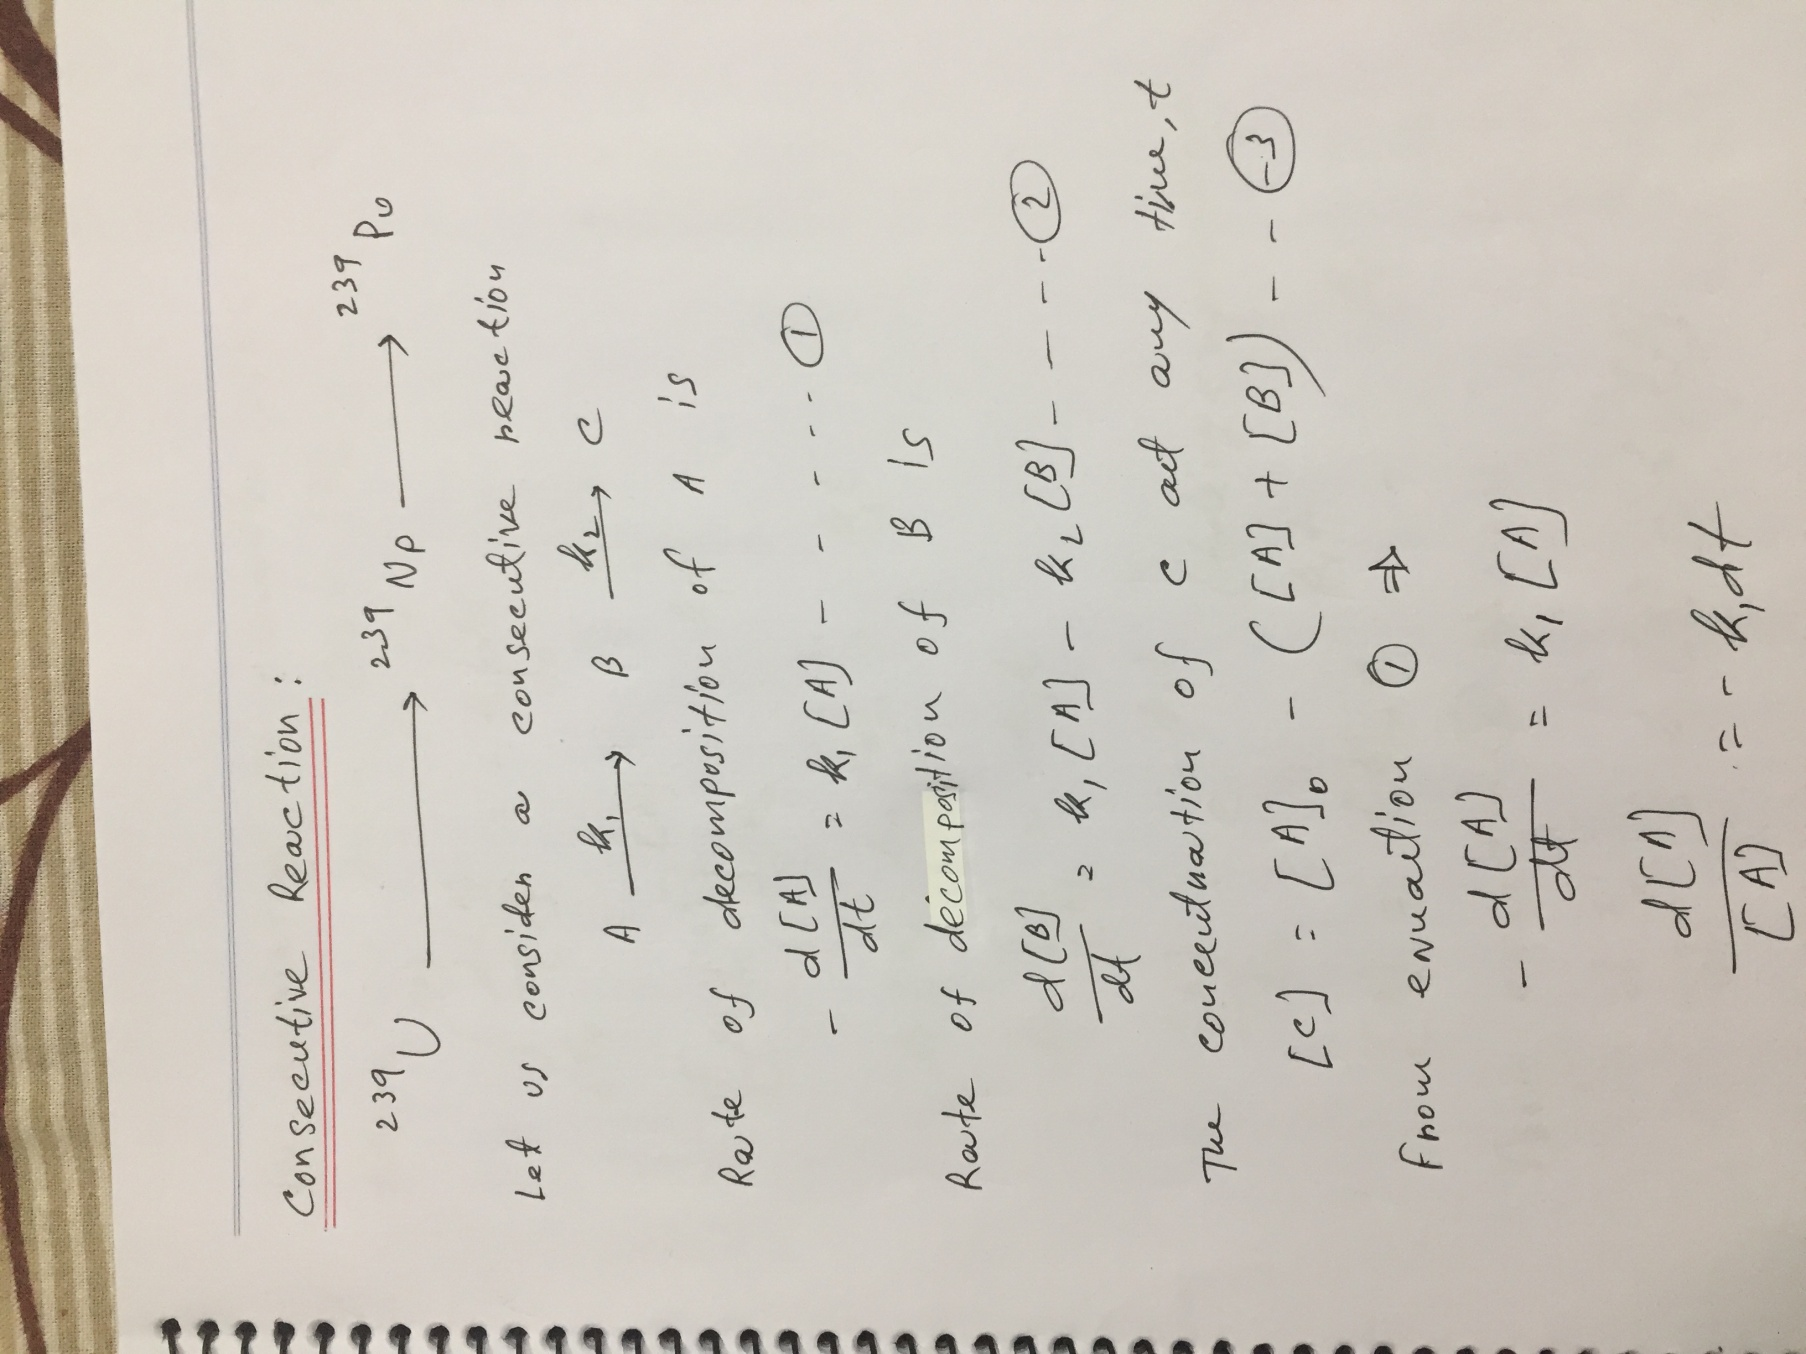 Consecutive Reaction:
²³⁹U ⟶ ²³⁹Np ⟶ ²³⁹Pu
Let us consider a consecutive reaction
A —k₁→ B —k₂→ C
Rate of decomposition of A is
- d[A]/dt = k₁[A] - - - - - - - ①
Rate of decomposition of B is
d[B]/dt = k₁[A] - k₂[B] - - - - - ②
The concentration of C at any time, t
[C] = [A]₀ - ([A] + [B]) - - - ③
From equation ① ⇒
- d[A]/dt = k₁[A]
d[A]/[A] = - k₁dt